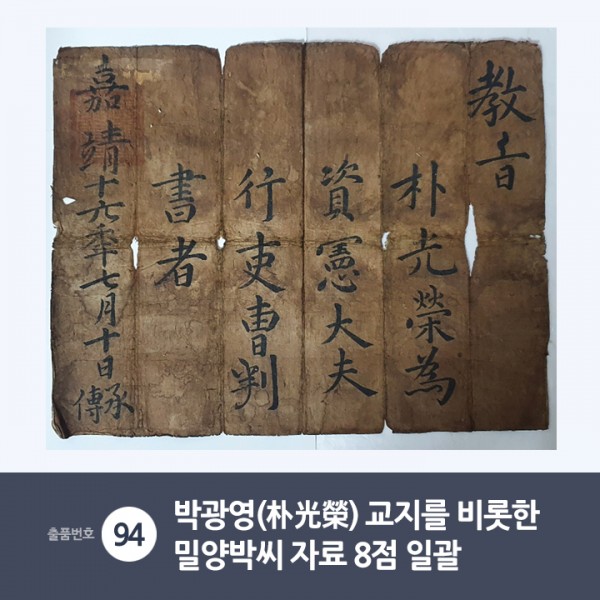 教旨
朴光榮為
資憲大夫
行吏曹判
書者
嘉靖十六年七月十日
承傳
출품번호
94
박광영(朴光榮) 교지를 비롯한
밀양박씨 자료 8점 일괄